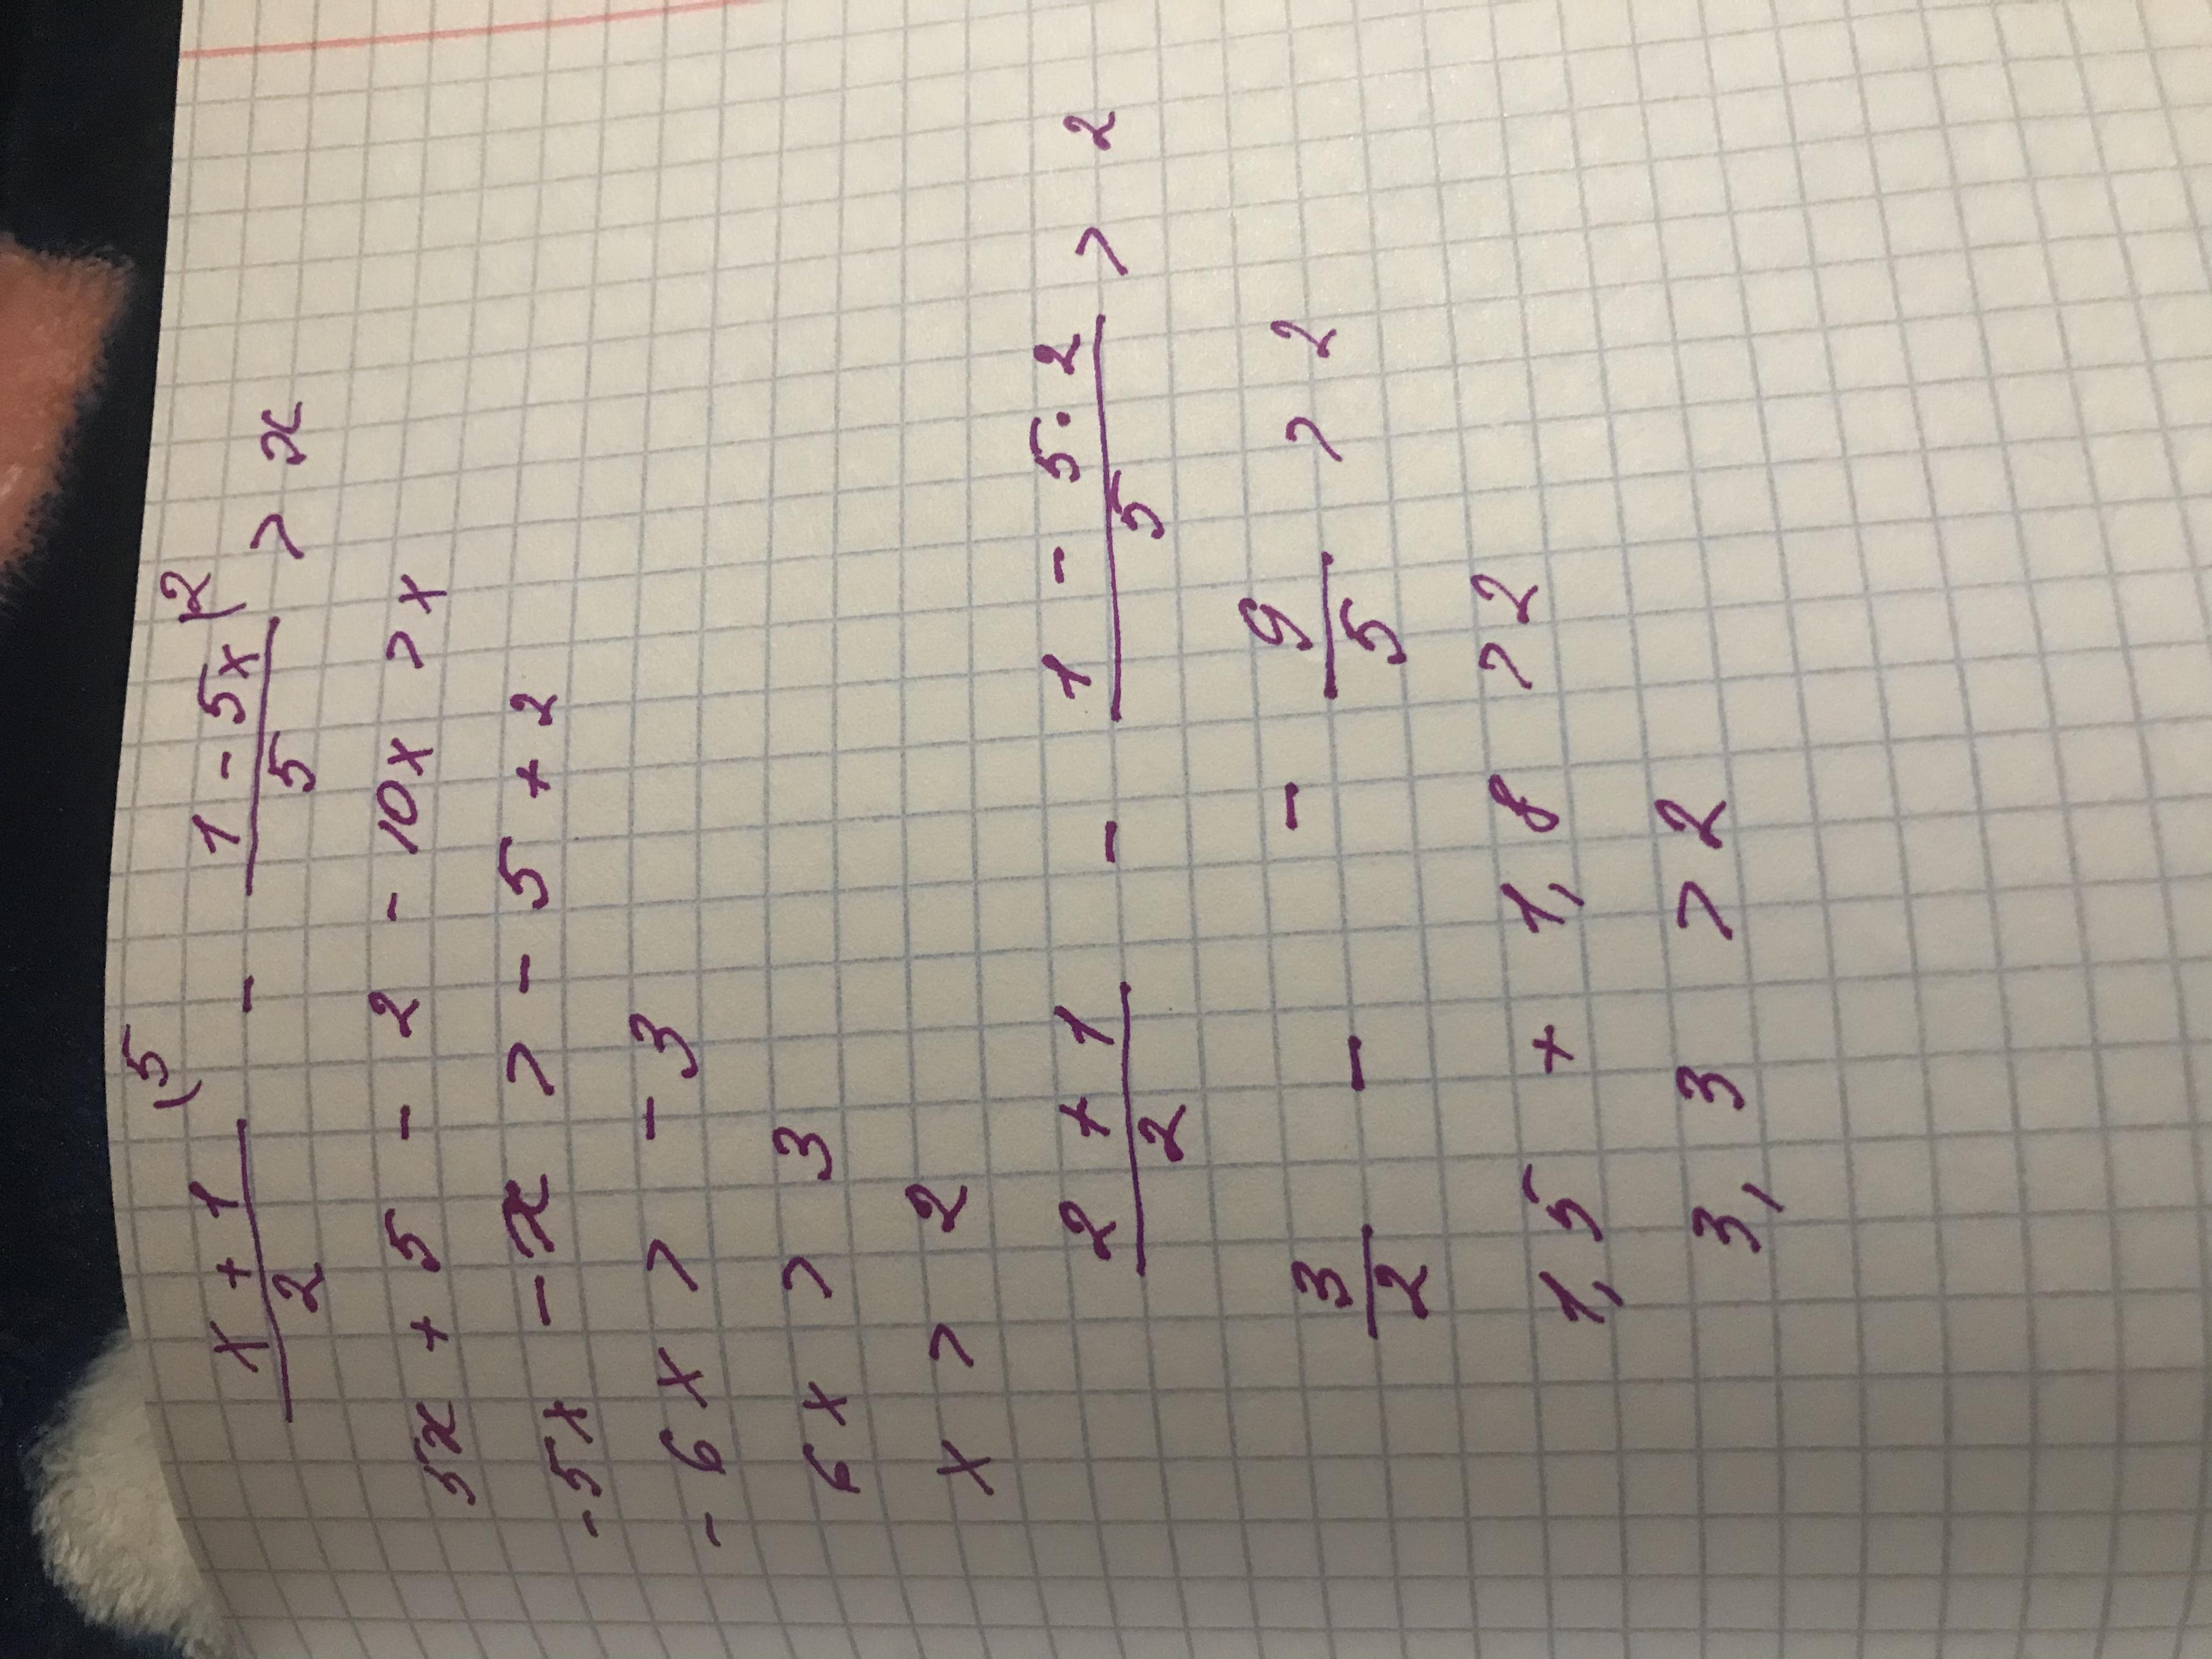 (x + 1)/2 (5 - (1 - 5x)/5 (2 > x
5x + 5 - 2 - 10x > x
-5x - x > - 5 + 2
- 6x > - 3
6x > 3
x > 2
(2 + 1)/2 - (1 - 5·2)/5 > 2
3/2 - - 9/5 > 2
1,5 + 1,8 > 2
3,3 > 2